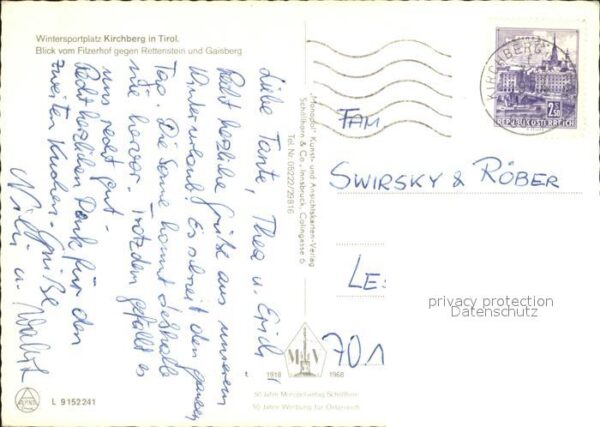 Wintersportplatz Kirchberg in Tirol.
Blick vom Filzerhof gegen Rettenstein und Gaisberg
Liebe Tante, Thea u. Erich!
Recht herzliche Grüße aus unserem
Winterurlaub! Es schneit den ganzen
Tag. Die Sonne kommt deshalb
nie hervor. Trotzdem gefällt es
uns recht gut.-
Recht herzlichen Dank für den
zweiten Kuchen. Grüße
u. Walter
"Monopol" Kunst- und Ansichtskarten-Verlag
Schöllhorn & Co., Innsbruck, Colingasse 6
Tel. Nr. 05222/29816
KIRCHBERG
2.50
REPUBLIK ÖSTERREICH
FAM
SWIRSKY & RÖBER
LE
701
privacy protection
Datenschutz
M V
1918 1968
50 Jahre Monopolverlag Schöllhorn
50 Jahre Werbung für Österreich
L 9152241